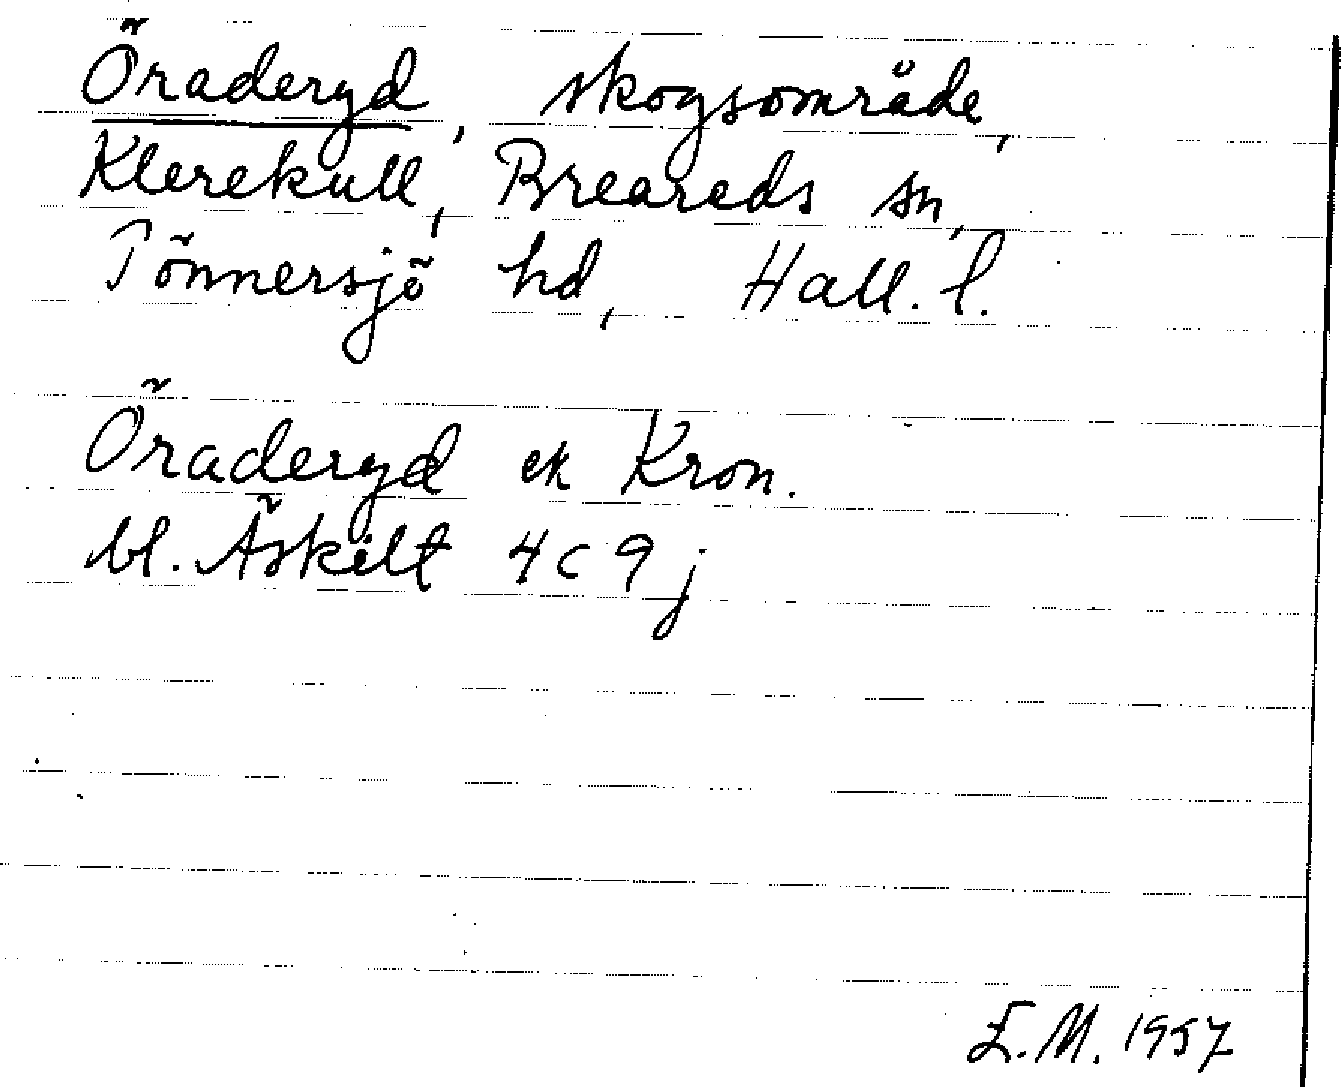 Öraderyd, skogsområde,
Klerekull, Breareds sn,
Tönnersjö hd, Hall. l.
Öraderyd ek Kron.
bl. Äskilt 4 c 9 j
E.M. 1957